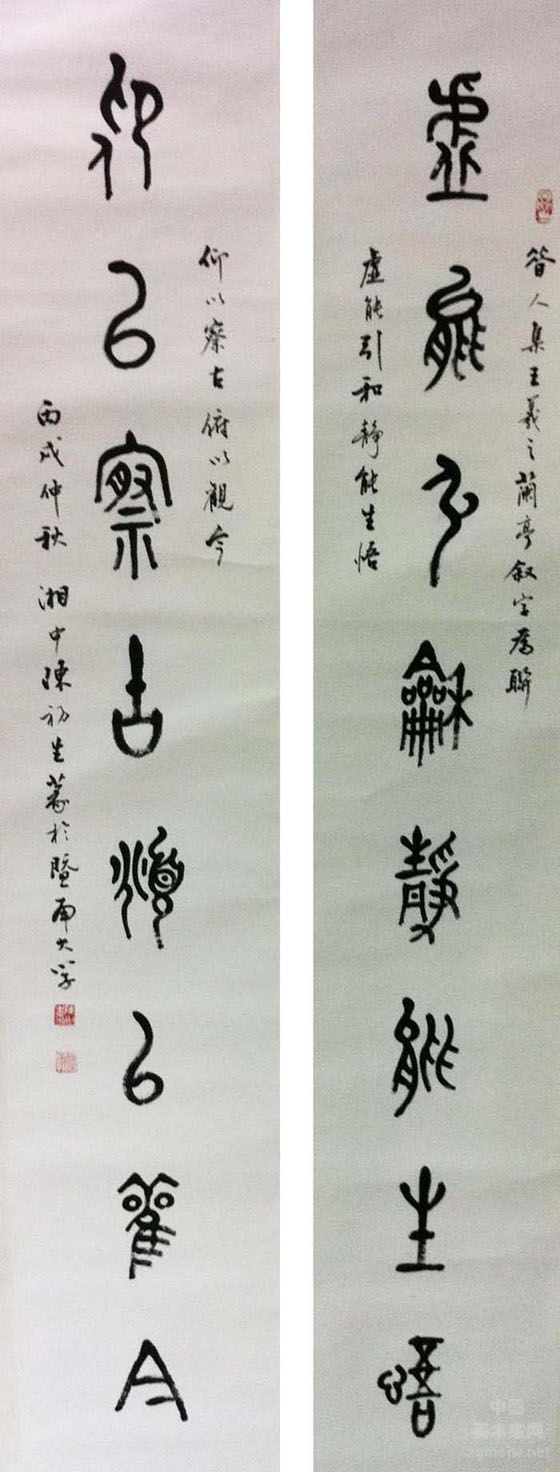 昔人集王羲之蘭亭叙字為聯
虛能引龢靜能生悟
虛能引和靜能生悟
仰以察古俯以觀今
仰以察古俯以觀今
丙戌仲秋 湘中陳初生篆於暨南大學
中国
美术家网